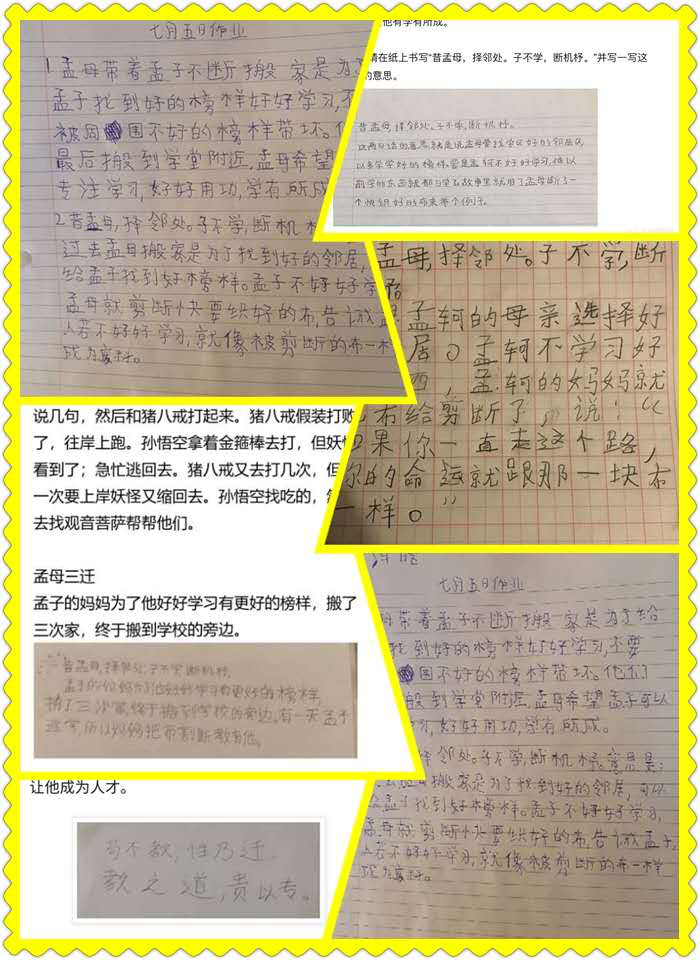 七月五日作业
1 孟母带着孟子不断搬 家是为了
孟子找到好的榜样好好学习,不
被周围不好的榜样带坏。他
最后搬到学堂附近,孟母希望
专注学习,好好用功,学有所成
2.昔孟母,择邻处。子不学,断机杼
过去孟母搬家是为了找到好的邻居,
给孟子找到好榜样。孟子不好好学
孟母就剪断快要织好的布,告诫孟
人若不好好学习,就像被剪断的布一样
成为废料。
他有学有所成。
请在纸上书写“昔孟母,择邻处。子不学,断机杼。”并写一写这
的意思。
昔孟母,择邻处。子不学,断机杼。
孟母,择邻处。子不学,断
孟轲的母亲选择好
居。孟轲不学习好
,孟轲的妈妈就
布给剪断了,说:“
果你一直走这个路,
你的命运就跟那一块布
一样。”
说几句,然后和猪八戒打起来。猪八戒假装打败
了,往岸上跑。孙悟空拿着金箍棒去打,但妖怪
看到了;急忙逃回去。猪八戒又去打几次,但
一次要上岸妖怪又缩回去。孙悟空找吃的,
去找观音菩萨帮帮他们。
孟母三迁
孟子的妈妈为了他好好学习有更好的榜样,搬了
三次家,终于搬到学校的旁边。
昔孟母,择邻处,子不学,断机杼。
孟子的妈妈为了他好好学习有更好的榜样,
搬了三次家,终于搬到学校的旁边。有一天孟子
逃学,所以妈妈把布割断教育他。
七月五日作业
带着孟子不断搬 家是为了给
找到好的榜样好好学习,不要
围不好的榜样带坏。他们
搬到学堂附近,孟母希望孟子可以
习,好好用功,学有所成。
择邻处。子不学,断机杼。意思是:
母搬家是为了找到好的邻居,可以
给孟子找到好榜样。孟子不好好学习,
孟母就剪断快要织好的布,告诫孟子,
人若不好好学习,就像被剪断的布一样
成为废料。
让他成为人才。
苟不教,性乃迁。
教之道,贵以专。